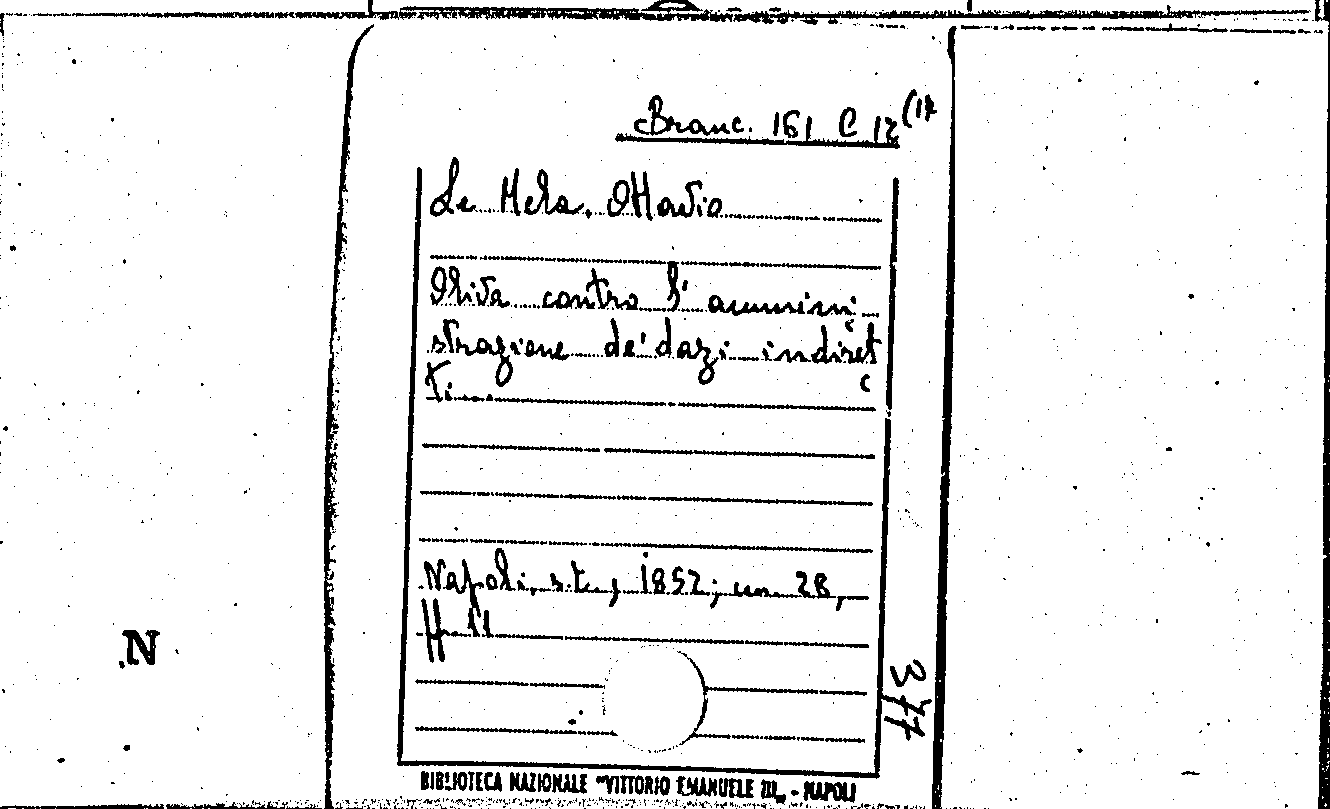 Branc. 161 C 12 (17
Le Mera, Ottavio
Oliva contro l'ammini
strazione de' dazi indiret
ti....
Napoli, s.t., 1852; cm. 28,
ff. 11
377
N
BIBLIOTECA NAZIONALE "VITTORIO EMANUELE III" - NAPOLI